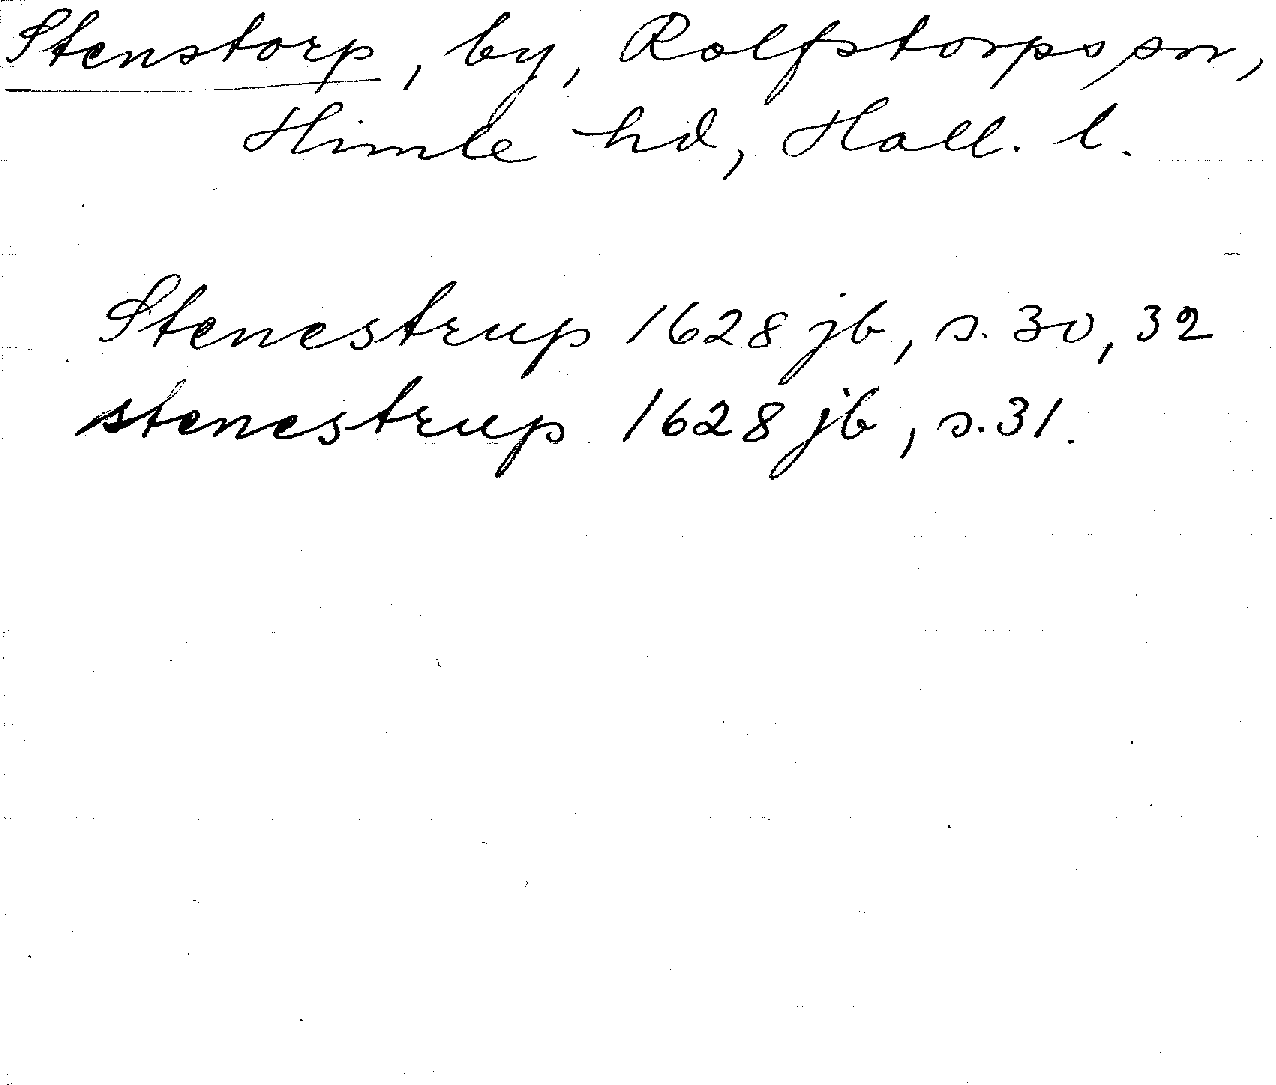 Stenstorp, by, Rolfstorps sn,
Himle hd, Hall. l.
Stenestrup 1628 jb, s. 30, 32
stenestrup 1628 jb, s. 31.